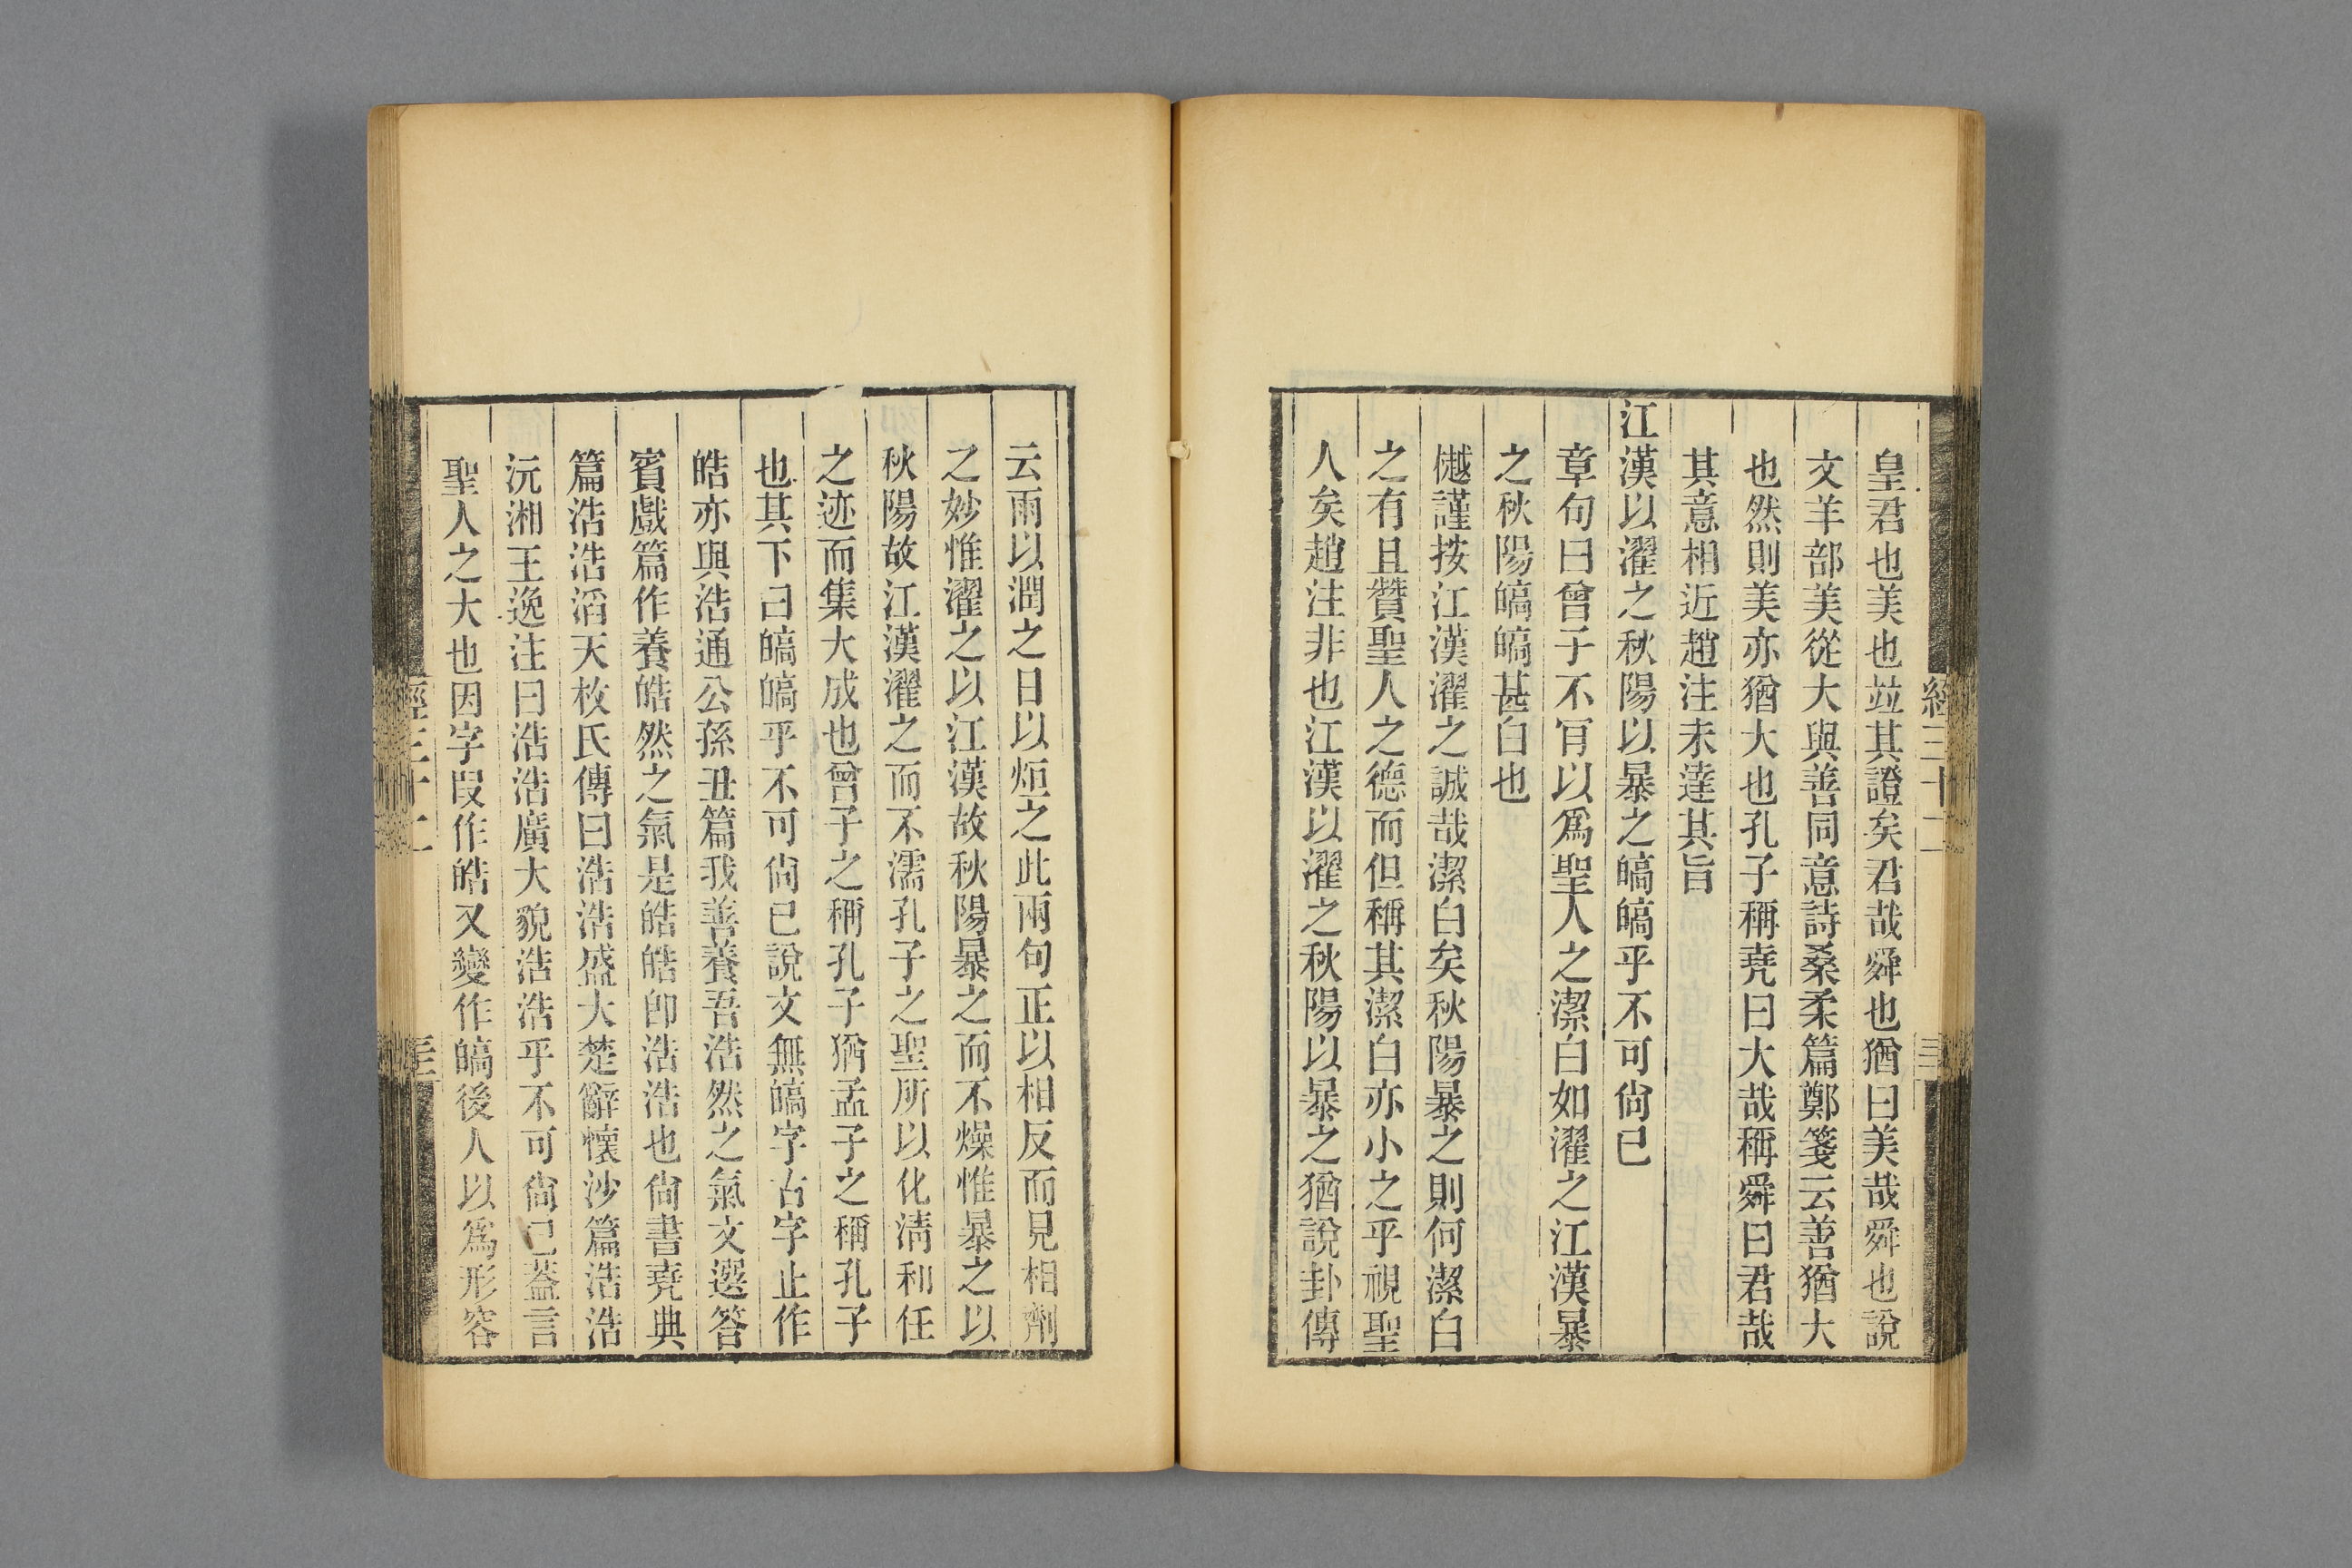 皇君也美也竝其證矣君哉舜也猶曰美哉舜也說
文羊部美從大與善同意詩桑柔篇鄭箋云善猶大
也然則美亦猶大也孔子稱堯曰大哉稱舜曰君哉
其意相近趙注未達其旨
江漢以濯之秋陽以暴之皜皜乎不可尙已
章句曰曾子不肎以爲聖人之潔白如濯之江漢暴
之秋陽皜皜甚白也
樾謹按江漢濯之誠哉潔白矣秋陽暴之則何潔白
之有且贊聖人之德而但稱其潔白亦小之乎視聖
人矣趙注非也江漢以濯之秋陽以暴之猶說卦傳
云雨以潤之日以烜之此兩句正以相反而見相劑
之妙惟濯之以江漢故秋陽暴之而不燥惟暴之以
秋陽故江漢濯之而不濡孔子之聖所以化淸和任
之迹而集大成也曾子之稱孔子猶孟子之稱孔子
也其下曰皜皜乎不可尙已說文無皜字古字止作
皓亦與浩通公孫丑篇我善養吾浩然之氣文選答
賓戲篇作養皓然之氣是皓皓卽浩浩也尙書堯典
篇浩浩滔天枚氏傳曰浩浩盛大楚辭懷沙篇浩浩
沅湘王逸注曰浩浩廣大貌浩浩乎不可尙已蓋言
聖人之大也因字叚作皓又變作皜後人以爲形容
經三十二